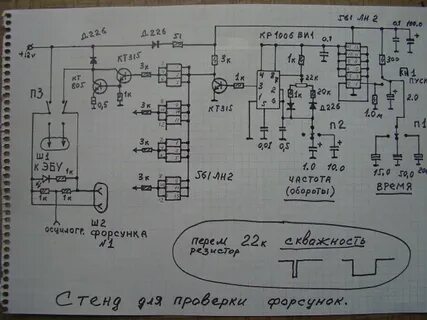 Д226
Д226
51
КР1006ВИ1
561ЛН2
0,1 100,0
+12v
КТ315
КТ 805
3к
3к
0,1
300
КН1
ПУСК
П3
0,5
1к
КТ315
1к
4 8
7
6
2
3
1 5
1к
22к
1к
20к
Д226
1.0м
2.0
3к
3к
3к
561ЛН2
0,01
0,5
П2
П1
Ш1
к ЭБУ
1к
1к
1к
1.0 10,0
15,0 50,0
ЧАСТОТА
(обороты)
ВРЕМЯ
осцилогр.
Ш2
форсунка
№1
перем 22к скважность
резистор
Стенд для проверки форсунок.